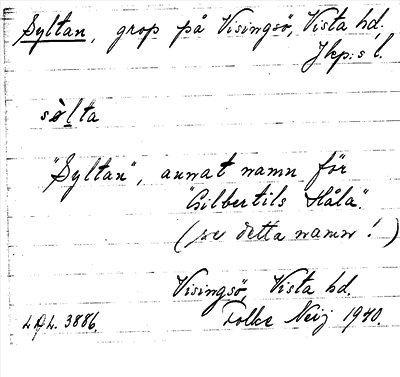 Syltan, grop på Visingsö, Vista hd.
Jkp:s l.
sølta
"Syltan", annat namn för
"Gilbertils Håla".
(se detta namn!)
Visingsö, Vista hd.
L.A.L. 3886. Folke Neij 1940.